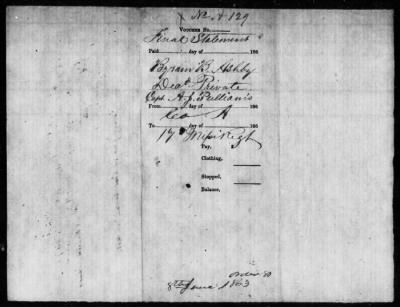 No A 129
VOUCHER No.
Final Statement
Paid day of 186
Byram B. Ashby
Decd Private
Capt A. J. Pulliam's
From day of 186
Co A
To day of 186
17 Miss Regt
Pay, $
Clothing,
Stopped,
Balance,
8th June 1863